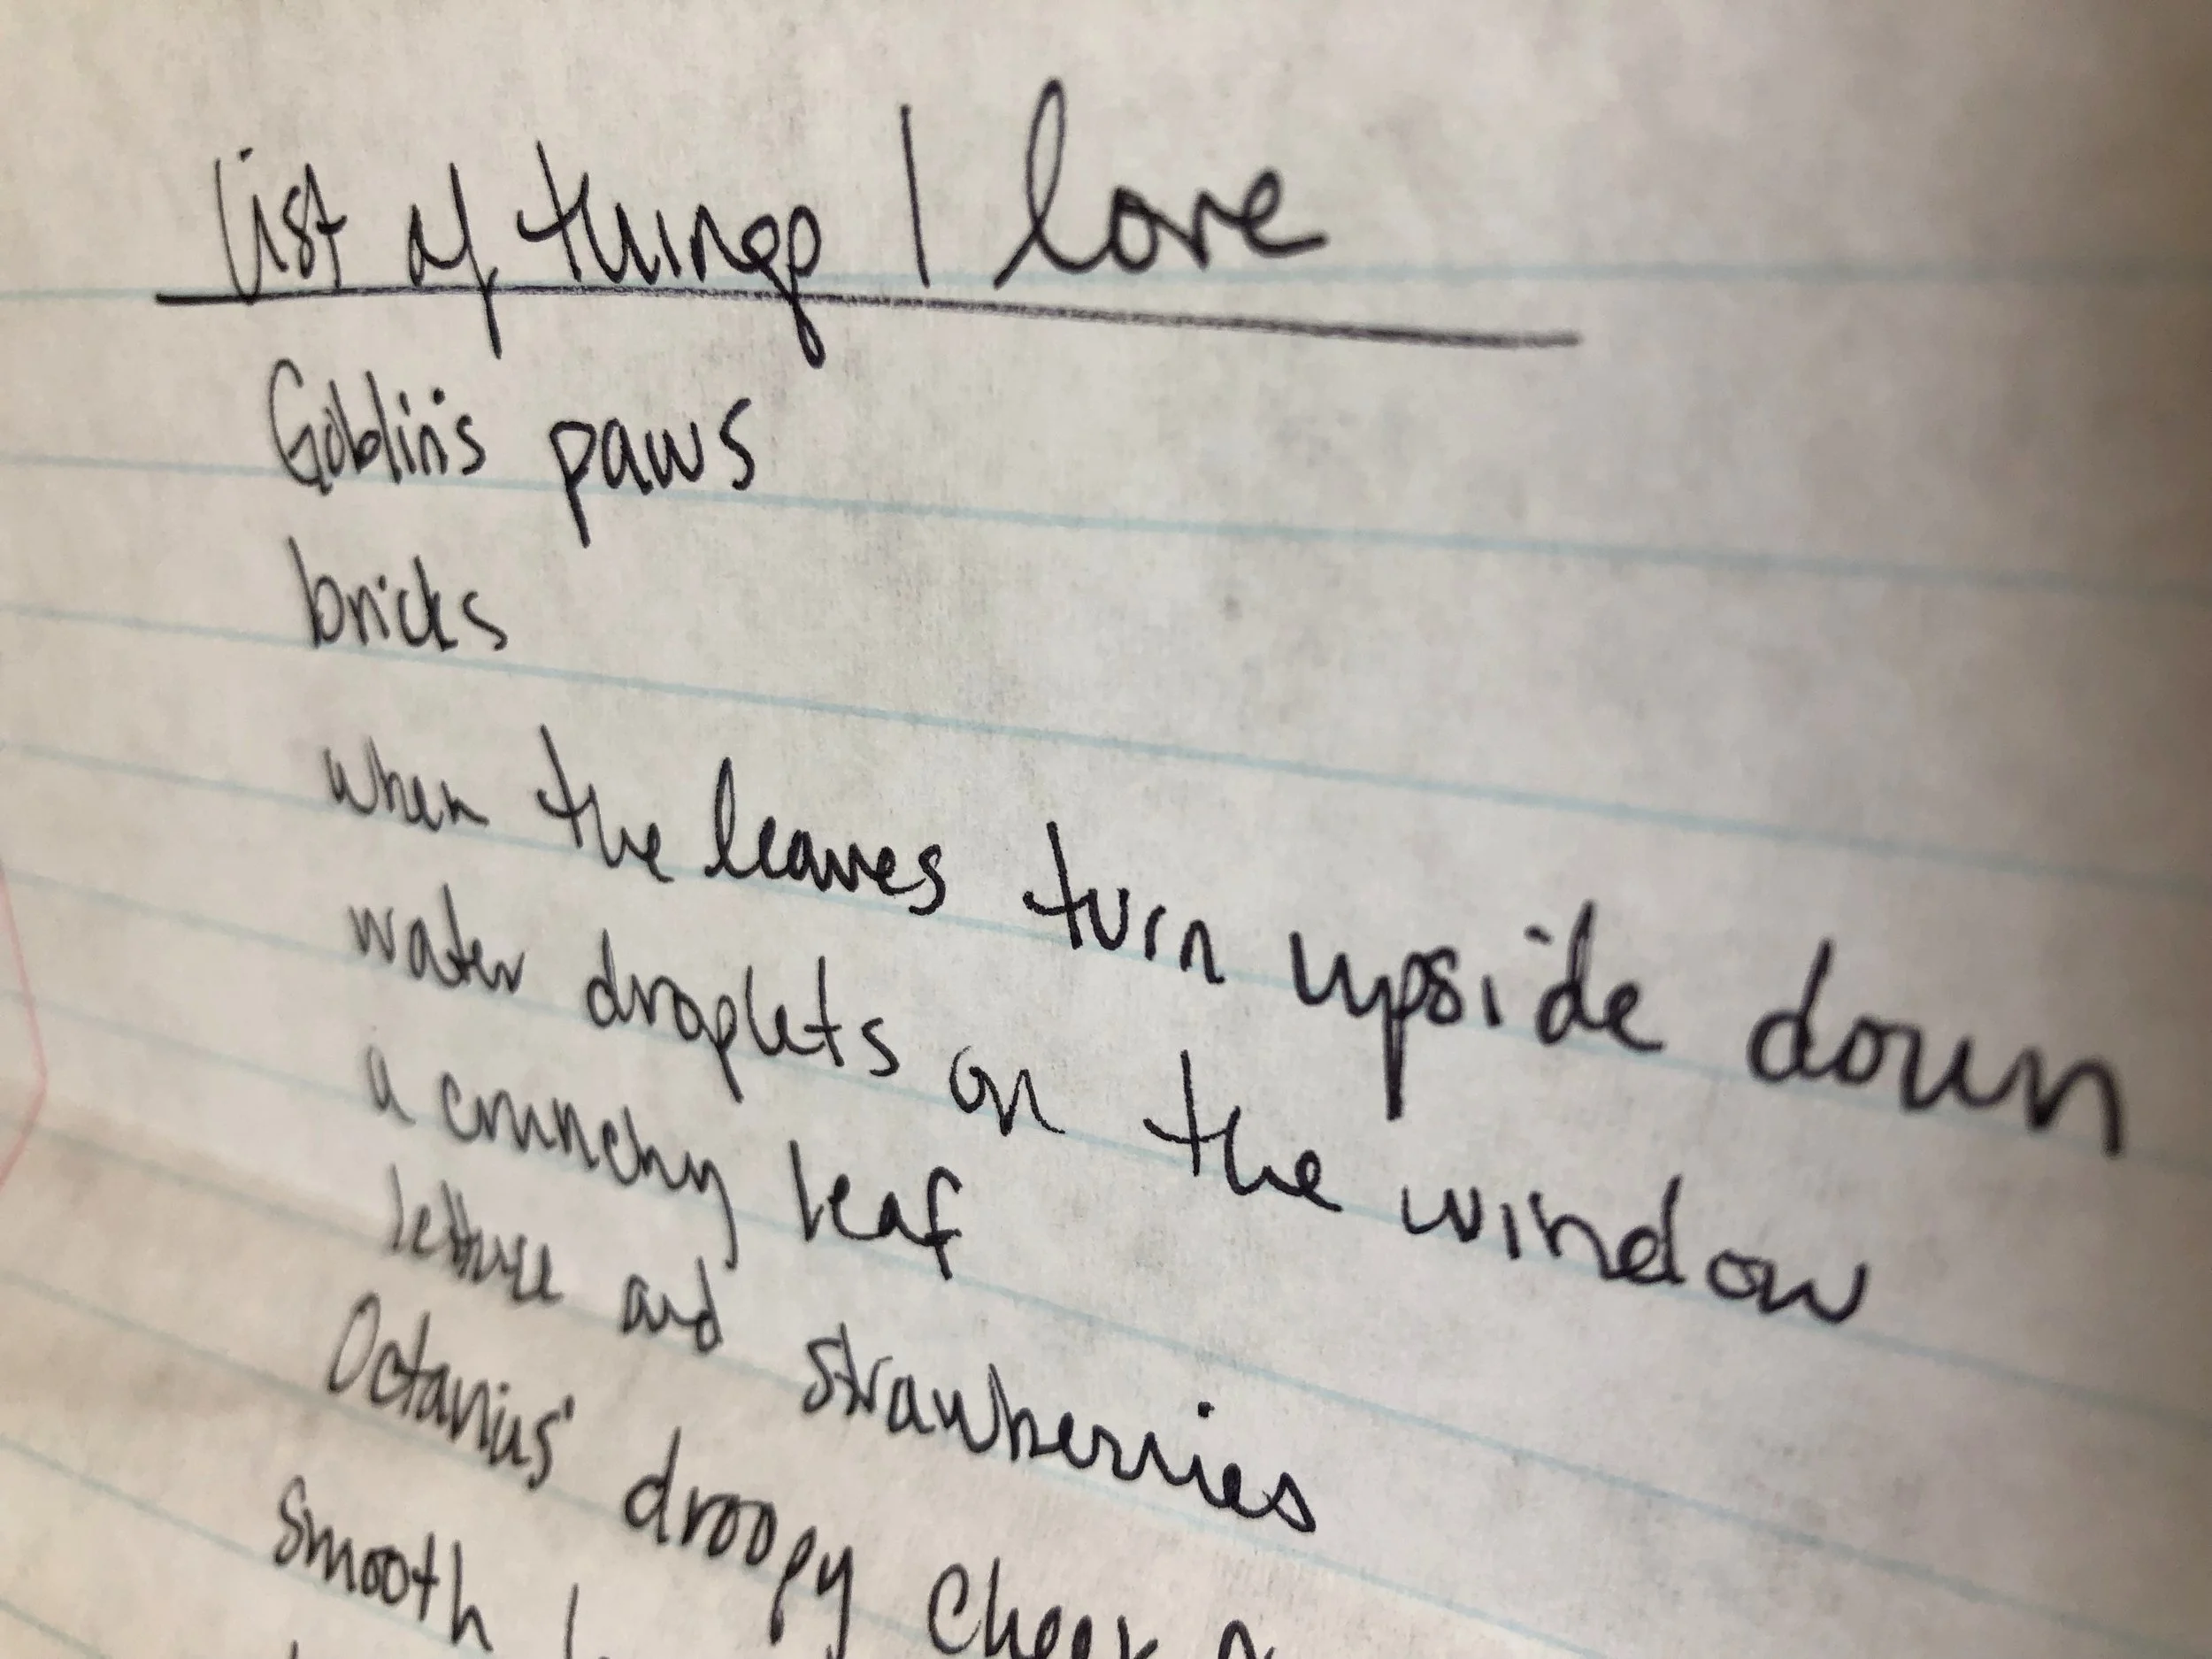 List of things I love
Goblin's paws
bricks
when the leaves turn upside down
water droplets on the window
a crunchy leaf
lettuce and strawberries
Octavius' droopy cheek
smooth